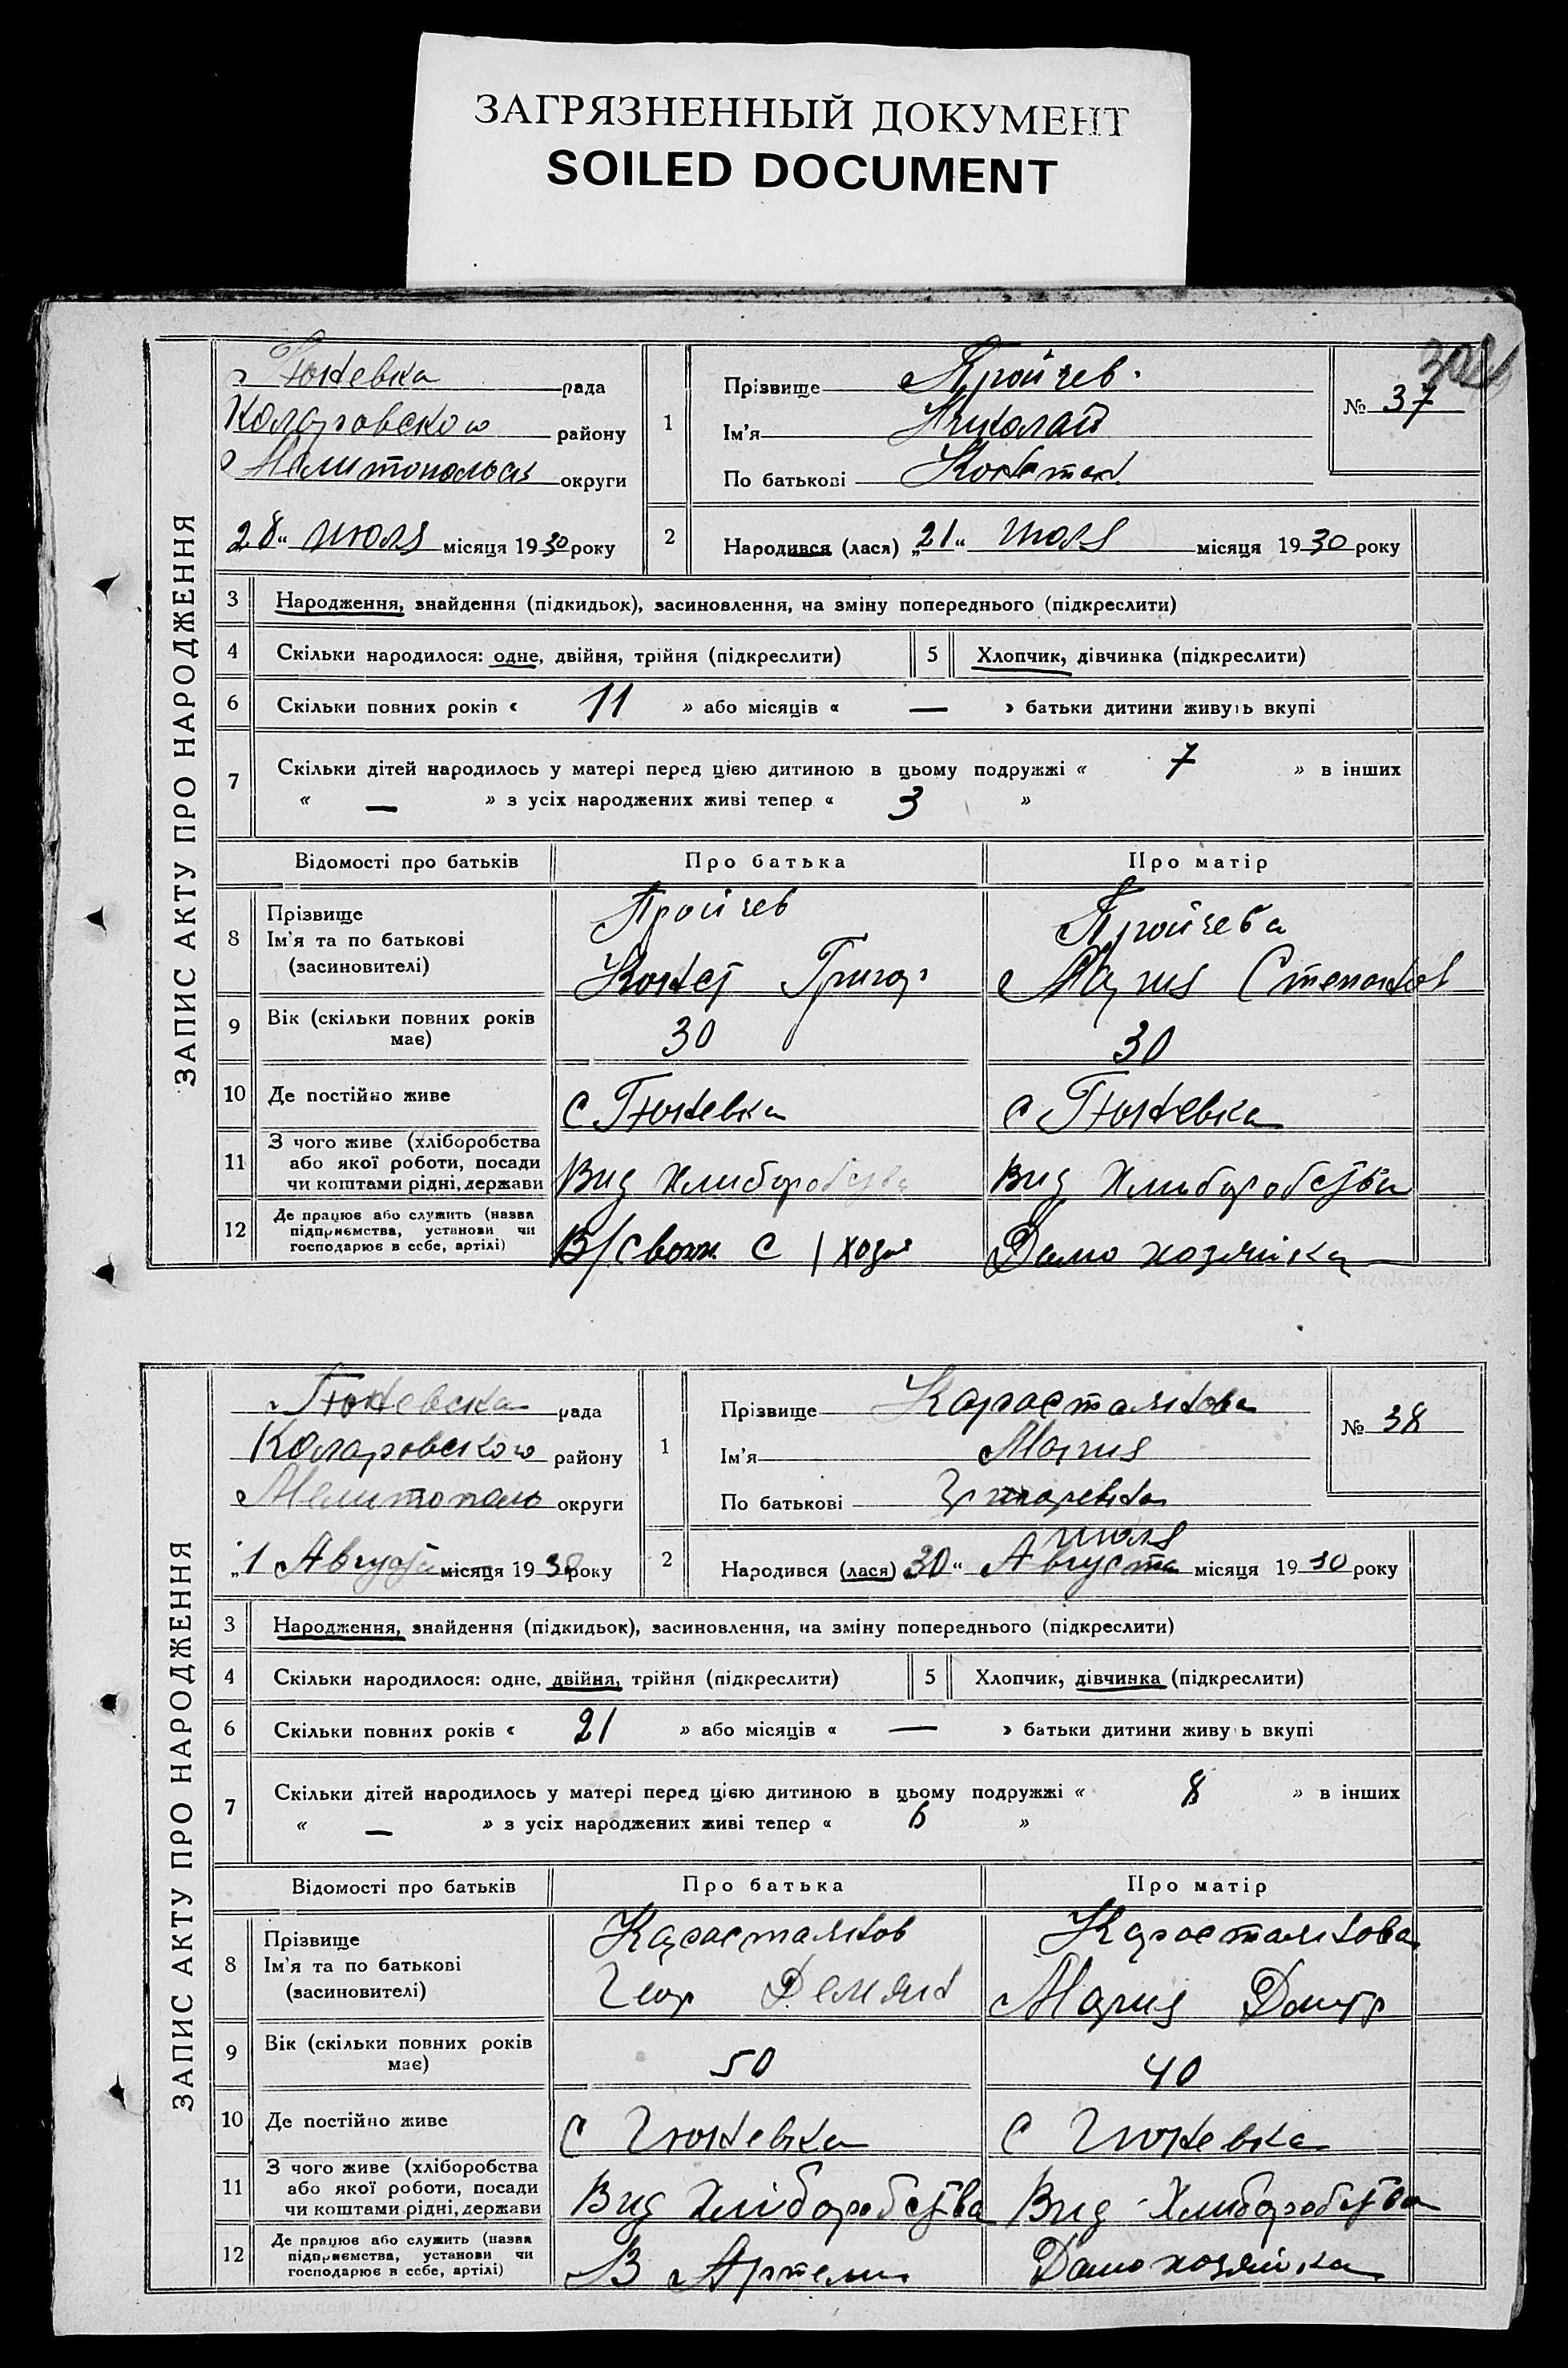 ЗАГРЯЗНЕННЫЙ ДОКУМЕНТ
SOILED DOCUMENT
ЗАПИС АКТУ ПРО НАРОДЖЕННЯ
Гюневка рада
Коларовского району
Мелитопольск округи
28 "июля місяця 1930 року
1 Прізвище
Ім'я Николай
По батькові Констан.
№ 37
2 Народився (лася) „21" июля місяця 1930 року
3 Народження, знайдення (підкидьок), засиновлення, на зміну попереднього (підкреслити)
4 Скільки народилося: одне, двійня, трійня (підкреслити) 5 Хлопчик, дівчинка (підкреслити)
6 Скільки повних років « 11 » або місяців « — » батьки дитини живуть вкупі
7 Скільки дітей народилось у матері перед цією дитиною в цьому подружжі « 7 » в інших
« — » з усіх народжених живі тепер « 3 »
Відомості про батьків Про батька Про матір
8 Прізвище
Ім'я та по батькові
(засиновителі)
Конст Григор
Мария Степанов
9 Вік (скільки повних років має) 30 30
10 Де постійно живе с Гюневка с Гюневка
11 З чого живе (хліборобства
або якої роботи, посади
чи коштами рідні, держави
Вид Хлиборобства Вид Хлиборобства
12 Де працює або служить (назва
підприємства, установи чи
господарює в себе, артілі)
В/своим с/хозя Домо хозяйка
ЗАПИС АКТУ ПРО НАРОДЖЕННЯ
Гюневска рада
Коларовского району
Мелитополь округи
„1 Августа місяця 1930 року
1 Прізвище Карастоянова
Ім'я Мария
По батькові
№ 38
2 Народився (лася) 30" Августа июля місяця 1930 року
3 Народження, знайдення (підкидьок), засиновлення, на зміну попереднього (підкреслити)
4 Скільки народилося: одне, двійня, трійня (підкреслити) 5 Хлопчик, дівчинка (підкреслити)
6 Скільки повних років « 21 » або місяців « — » батьки дитини живуть вкупі
7 Скільки дітей народилось у матері перед цією дитиною в цьому подружжі « 8 » в інших
« — » з усіх народжених живі тепер « 6 »
Відомості про батьків Про батька Про матір
8 Прізвище
Ім'я та по батькові
(засиновителі)
Карастоянов Карастоянова
Геор Демян Мария Дмитр
9 Вік (скільки повних років має) 50 40
10 Де постійно живе с Гюневка с Гюневка
11 З чого живе (хліборобства
або якої роботи, посади
чи коштами рідні, держави
Вид Хліборобства Вид Хлиборобства
12 Де працює або служить (назва
підприємства, установи чи
господарює в себе, артілі)
В Артели Домо хозяйка